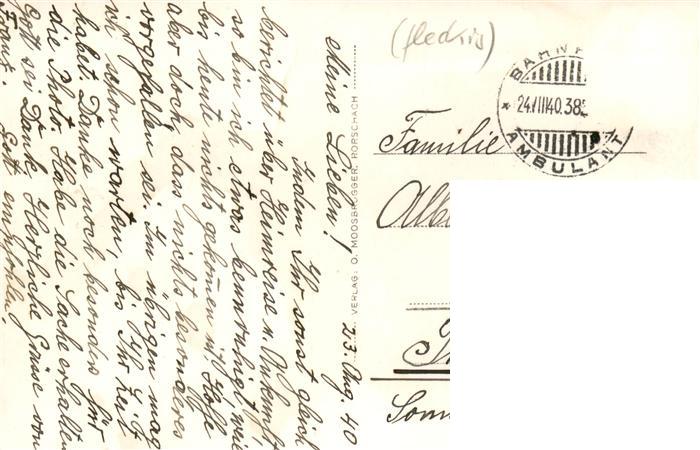 (fleckig)
BAHNP
* 24.VIII40.38
AMBULANT
Familie
Albe
Sonn
VERLAG: O. MOOSBRUGGER, RORSCHACH
23. Aug. 40
Meine Lieben!
Indem Ihr sonst gleich
berichtet über Heimreise u. Ankunft,
so bin ich etwas beunruhigt, weil
bis heute nichts gekommen ist. Hoffe
aber doch, dass nichts besonderes
vorgefallen sei. Im übrigen mag
ich schon warten, bis Ihr Zeit
habt. Danke noch besonders für
die Phot. Habe die Sache erhalten
Gott sei Dank. Herzliche Grüsse von
Franz. Gott empfohlen.